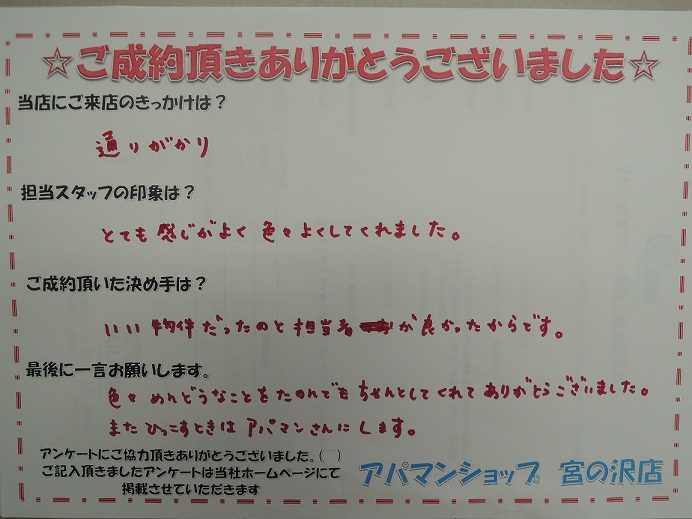 ☆ご成約頂きありがとうございました☆
当店にご来店のきっかけは？
通りがかり
担当スタッフの印象は？
とても感じがよく色々よくしてくれました。
ご成約頂いた決め手は？
いい物件だったのと担当者が良かったからです。
最後に一言お願いします。
色々めんどうなことをたのんでもちゃんとしてくれてありがとうございました。
またひっこすときはアパマンさんにします。
アンケートにご協力頂きありがとうございました。( )
ご記入頂きましたアンケートは当社ホームページにて
掲載させていただきます
アパマンショップ 宮の沢店